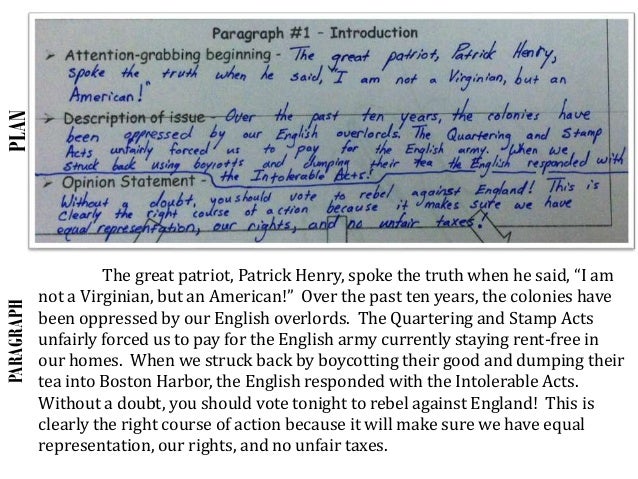 PLAN
Paragraph #1 - Introduction
➤ Attention-grabbing beginning - The great patriot, Patrick Henry,
spoke the truth when he said, "I am not a Virginian, but an
American!"
➤ Description of issue - Over the past ten years, the colonies have
been oppressed by our English overlords. The Quartering and Stamp
Acts unfairly forced us to pay for the English army. When we
struck back using boycotts and dumping their tea the English responded with
the Intolerable Acts!
➤ Opinion Statement -
Without a doubt, you should vote to rebel against England! This is
clearly the right course of action because it makes sure we have
equal representation, our rights, and no unfair taxes!
PARAGRAPH
The great patriot, Patrick Henry, spoke the truth when he said, “I am
not a Virginian, but an American!” Over the past ten years, the colonies have
been oppressed by our English overlords. The Quartering and Stamp Acts
unfairly forced us to pay for the English army currently staying rent-free in
our homes. When we struck back by boycotting their good and dumping their
tea into Boston Harbor, the English responded with the Intolerable Acts.
Without a doubt, you should vote tonight to rebel against England! This is
clearly the right course of action because it will make sure we have equal
representation, our rights, and no unfair taxes.